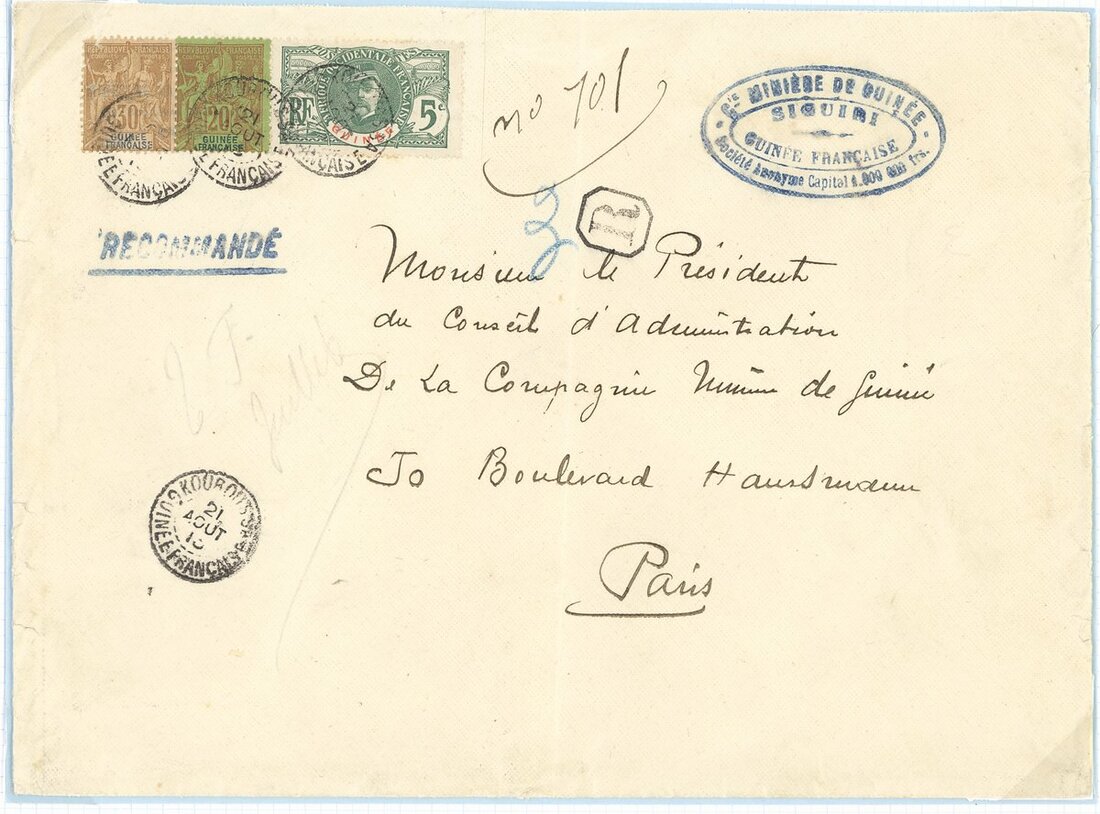 RÉPUBLIQUE FRANÇAISE
30
GUINÉE
FRANÇAISE
RÉPUBLIQUE FRANÇAISE
20
GUINÉE
FRANÇAISE
RF
5c
GUINÉE
21
AOUT
GUINÉE FRANÇAISE
no 701
Cie MINIÈRE DE GUINÉE
SIGUIRI
GUINÉE FRANÇAISE
Société Anonyme Capital 1.800 000 frs.
R
RECOMMANDÉ
Monsieur le Président
du Conseil d'Administration
De La Compagnie Minière de Guinée
Boulevard Haussmann
Paris
Juillet
KOUROUSSA
21
AOUT
10
GUINÉE FRANÇAISE